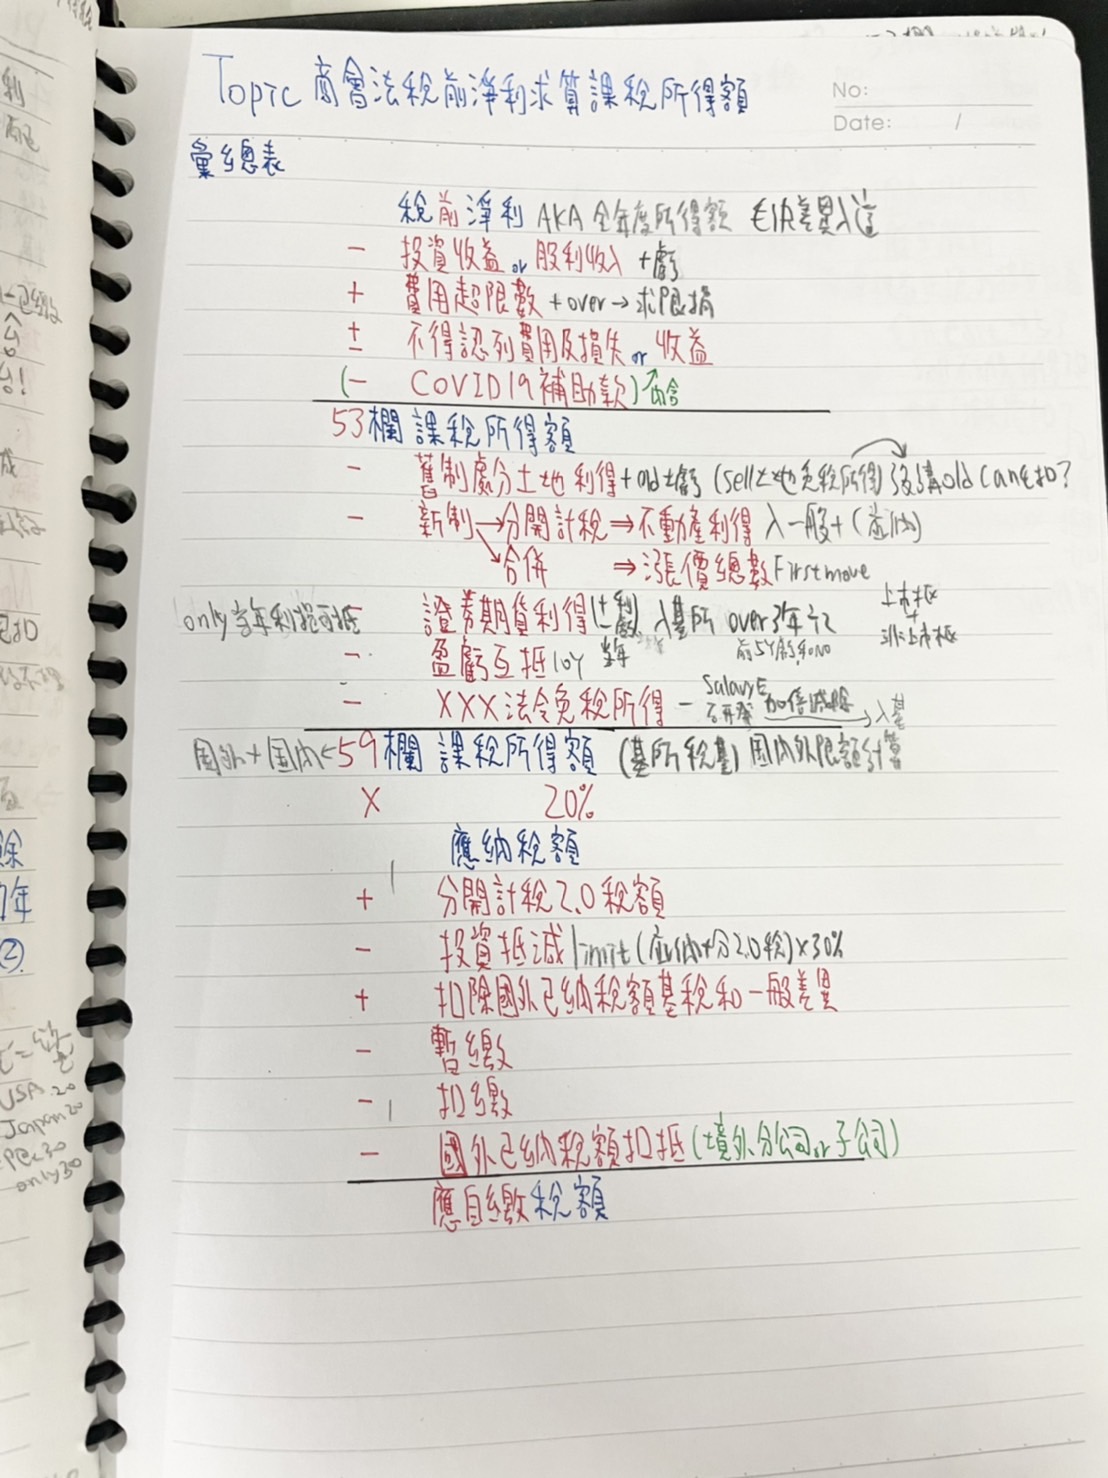 Topic 商會法稅前淨利求算課稅所得額
No:
Date: /
彙總表
稅前淨利 AKA 全年度所得額 毛決差異入這
- 投資收益 or 股利收入 + 虧
+ 費用超限數 + over → 求限損
± 不得認列費用及損失 or 收益
(- COVID19補助款)
53欄課稅所得額
- 舊制處分土地利得 + old土虧 (sell土地免稅所得) old can
- 新制 → 分開計稅 ⇒ 不動產利得 入一般+
合併 ⇒ 漲價總數 First move
only當年利 可抵 - 證券期貨利得(土利虧 入基所 over3年 上市抵 + 非上市抵
- 盈虧互抵10Y 當年 前5Y虧
- XXX法令免稅所得 - Salary 加倍減除 → 入基
國外+國內 < 59欄 課稅所得額 (基所稅基) 國內外限額計算
X 20%
應納稅額
+ 分開計稅2.0稅額
- 投資抵減 limit (應納+分2.0稅) x 30%
+ 扣除國外已納稅額基稅和一般差異
- 暫繳
- 扣繳
- 國外已納稅額扣抵 (境外分公司 or 子公司)
應自繳稅額
利
餘
年
USA 20
Japan 20
only 30